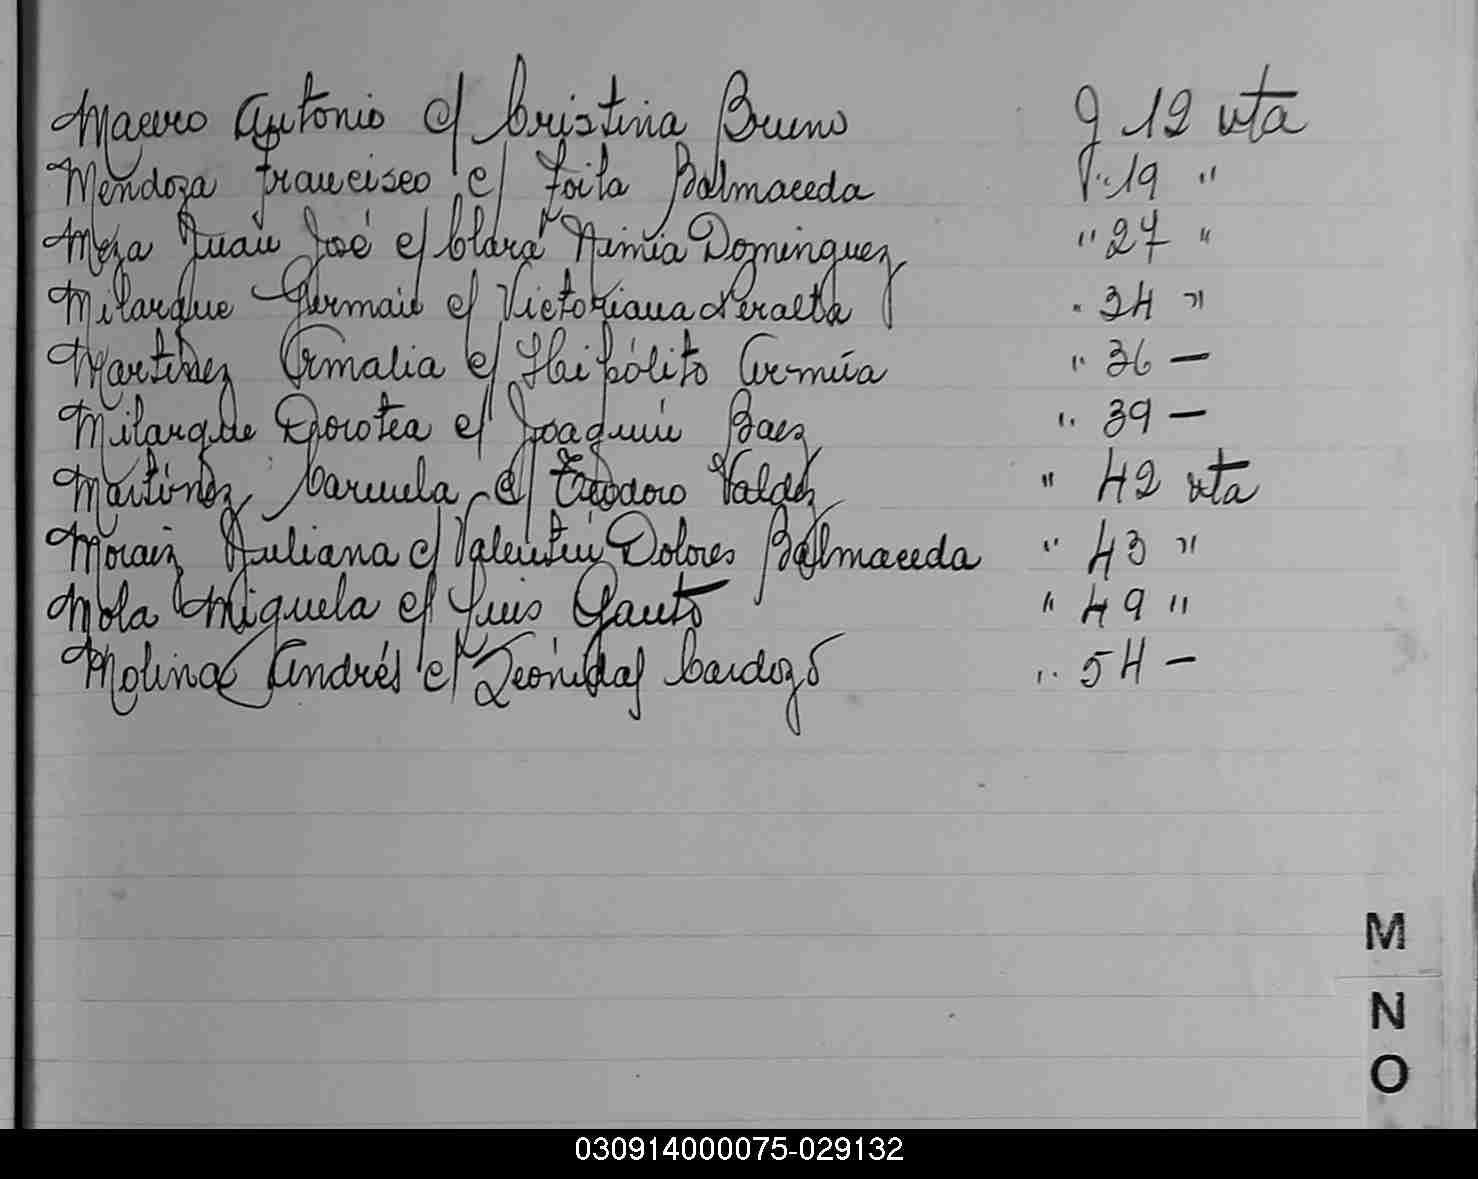 Mauro Antonio c/ Cristina Bruno g 12 vta
Mendoza Francisco c/ Zoila Balmaceda " 19 "
Meza Juan José c/ Clara Nimia Dominguez " 27 "
Milarque German c/ Victoriana Peralta " 34 "
Martinez Amalia c/ Hipólito Armúa " 36 —
Milarque Dorotea c/ Joaquin Baez " 39 —
Martinez c/ Teodoro Valdez " 42 vta
Juliana c/ Valentin Dolores Balmaceda " 43 "
Mola Miguela c/ Luis Gauto " 49 "
Molina Andrés c/ Leónidas Cardozo " 54 —
M
N
O
030914000075-029132